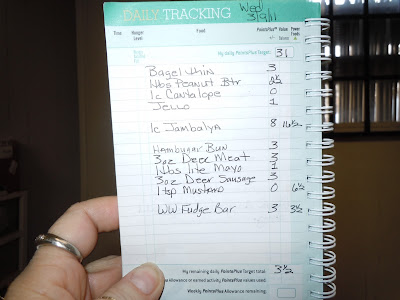 Wed
3/9/11
DAILY TRACKING
Time Hunger Level Food PointsPlus™ Value Power Foods
My daily PointsPlus Target: 31
Bagel thin 3
1tbs Peanut Btr 2
1c Cantalope 0
Jello 1
1c Jambalya 8 16½
Hamburger Bun 3
3oz Deer Meat 3
1tbs Lite Mayo 1
3oz Deer Sausage 3
1tsp Mustard 0 6½
WW Fudge Bar 3 3½
My remaining daily PointsPlus Target total: 3½
Allowance or earned activity PointsPlus values used:
Weekly PointsPlus Allowance remaining: